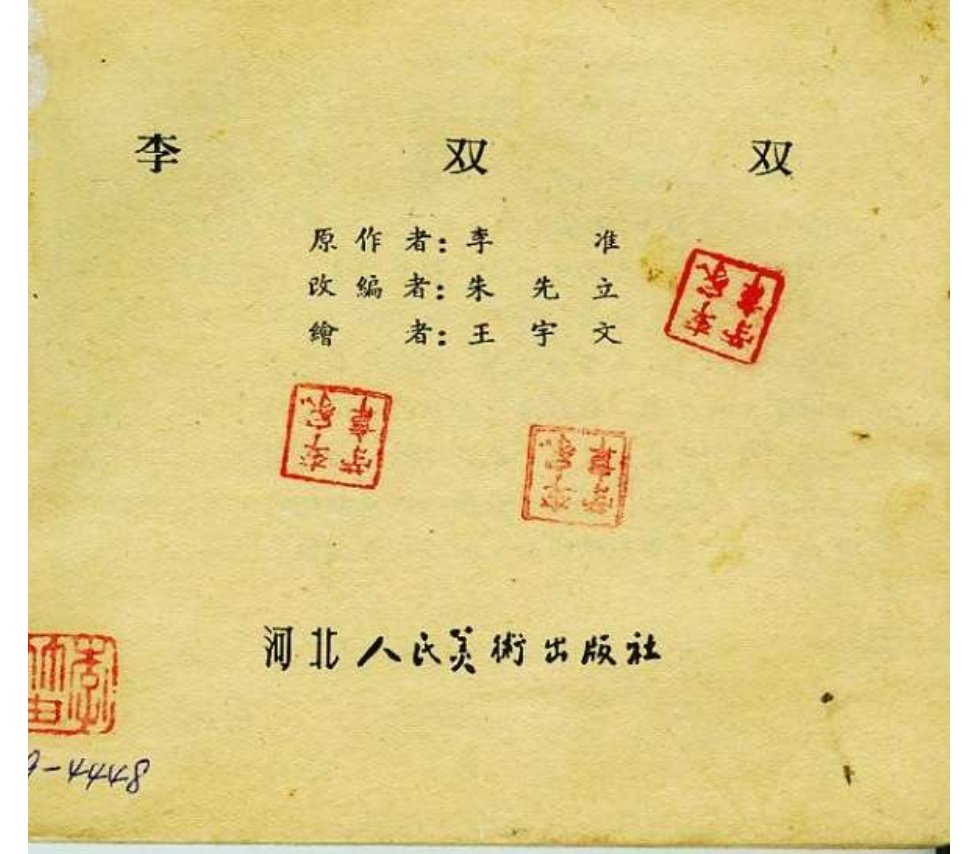 李双双
原作者:李准
改編者:朱先立
繪者:王宇文
河北人民美術出版社
-4448